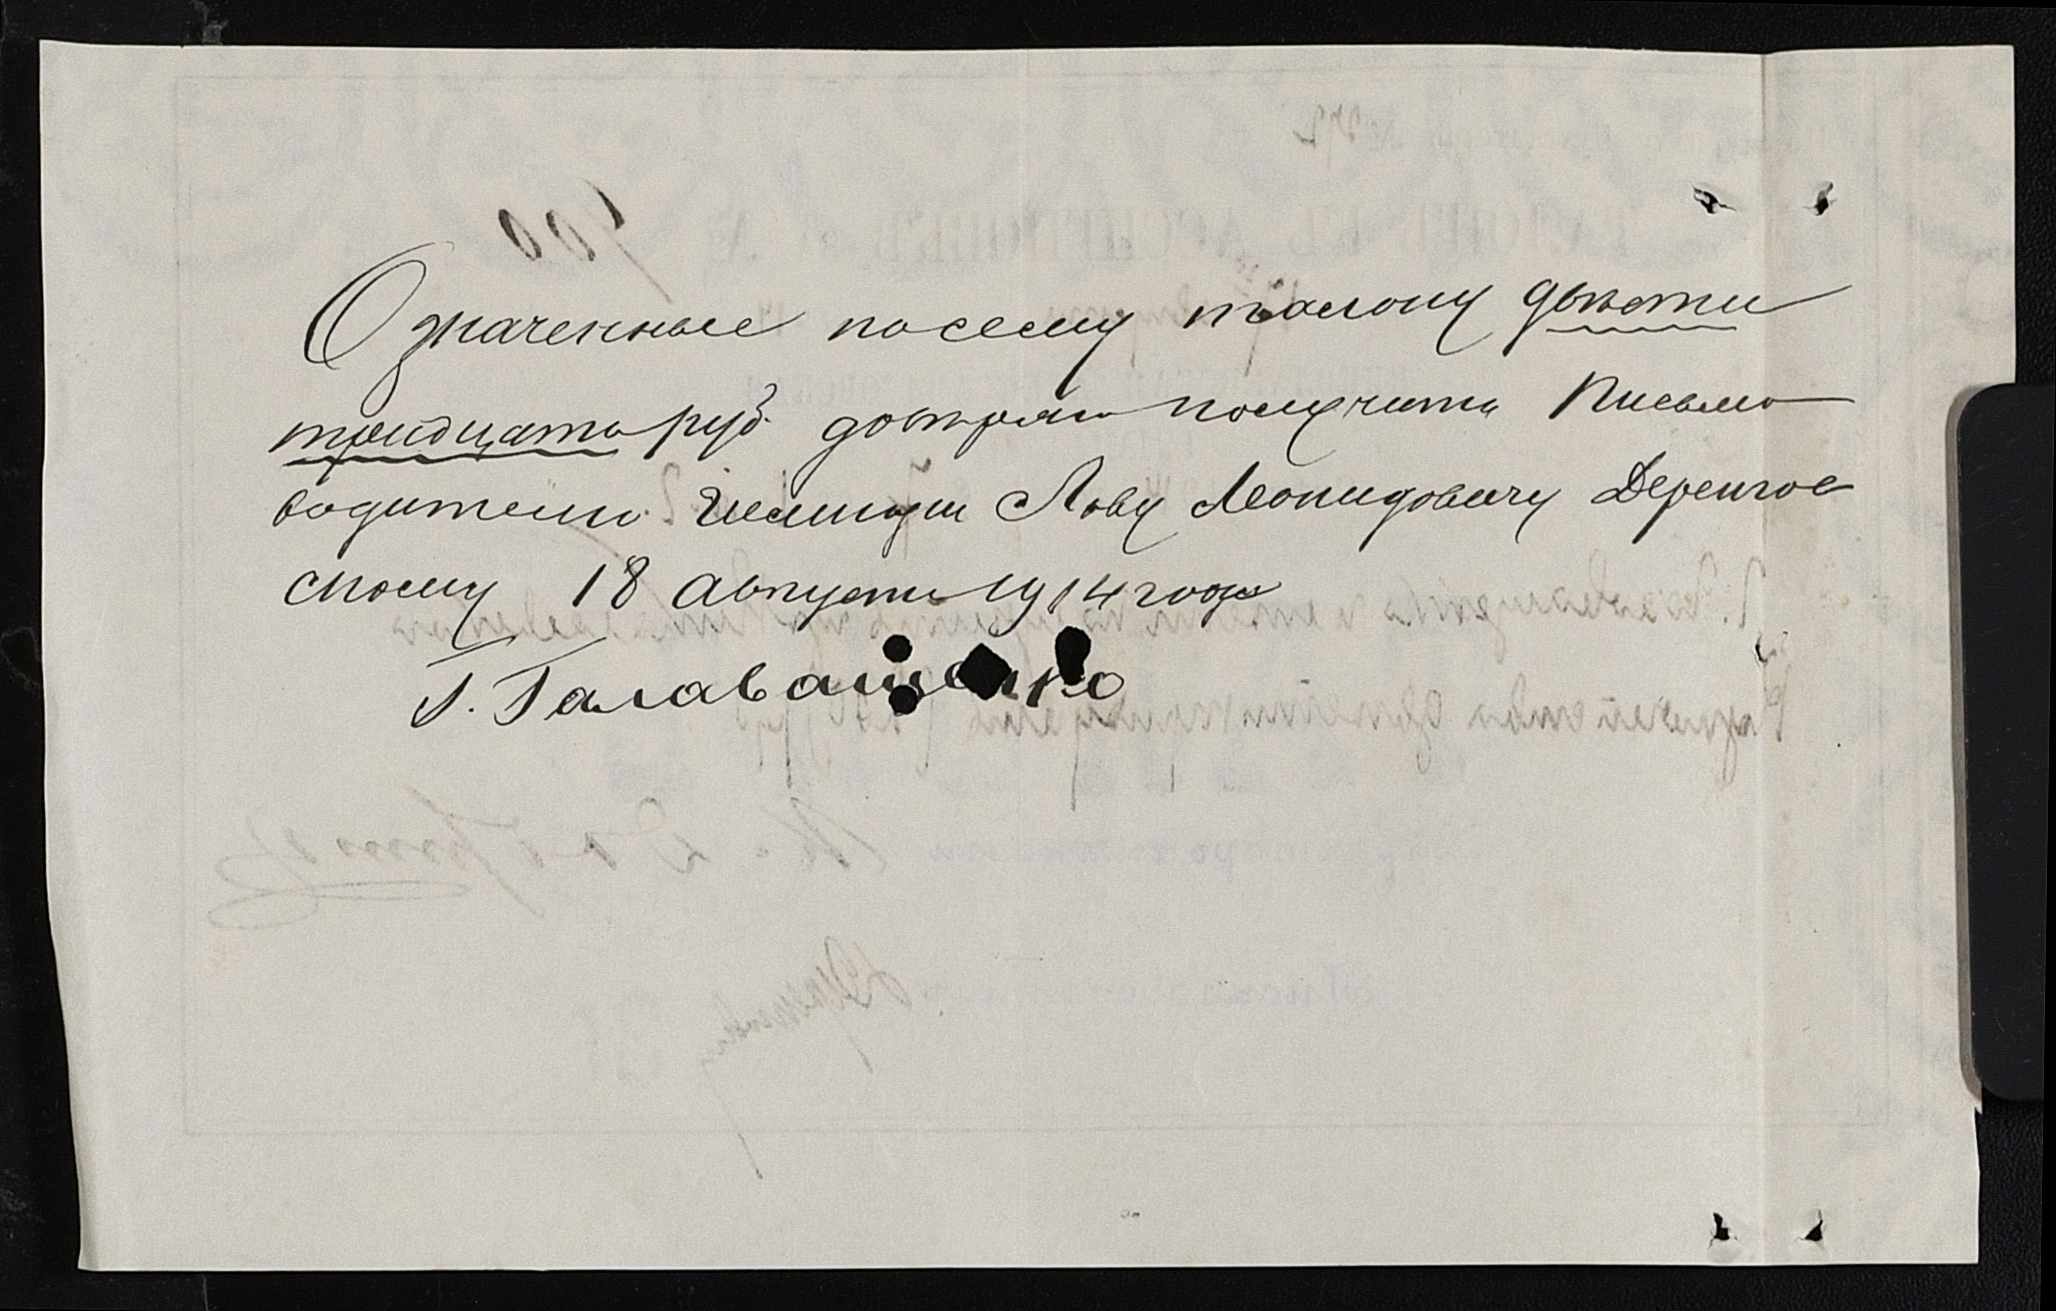 Означенные по сему талону двѣсти
тридцать руб. довѣряю получить Письмо
водителю Гимназіи Льву Леонидовичу Деренгов
скому 18 августа 1914 года
Г. Галаващенко